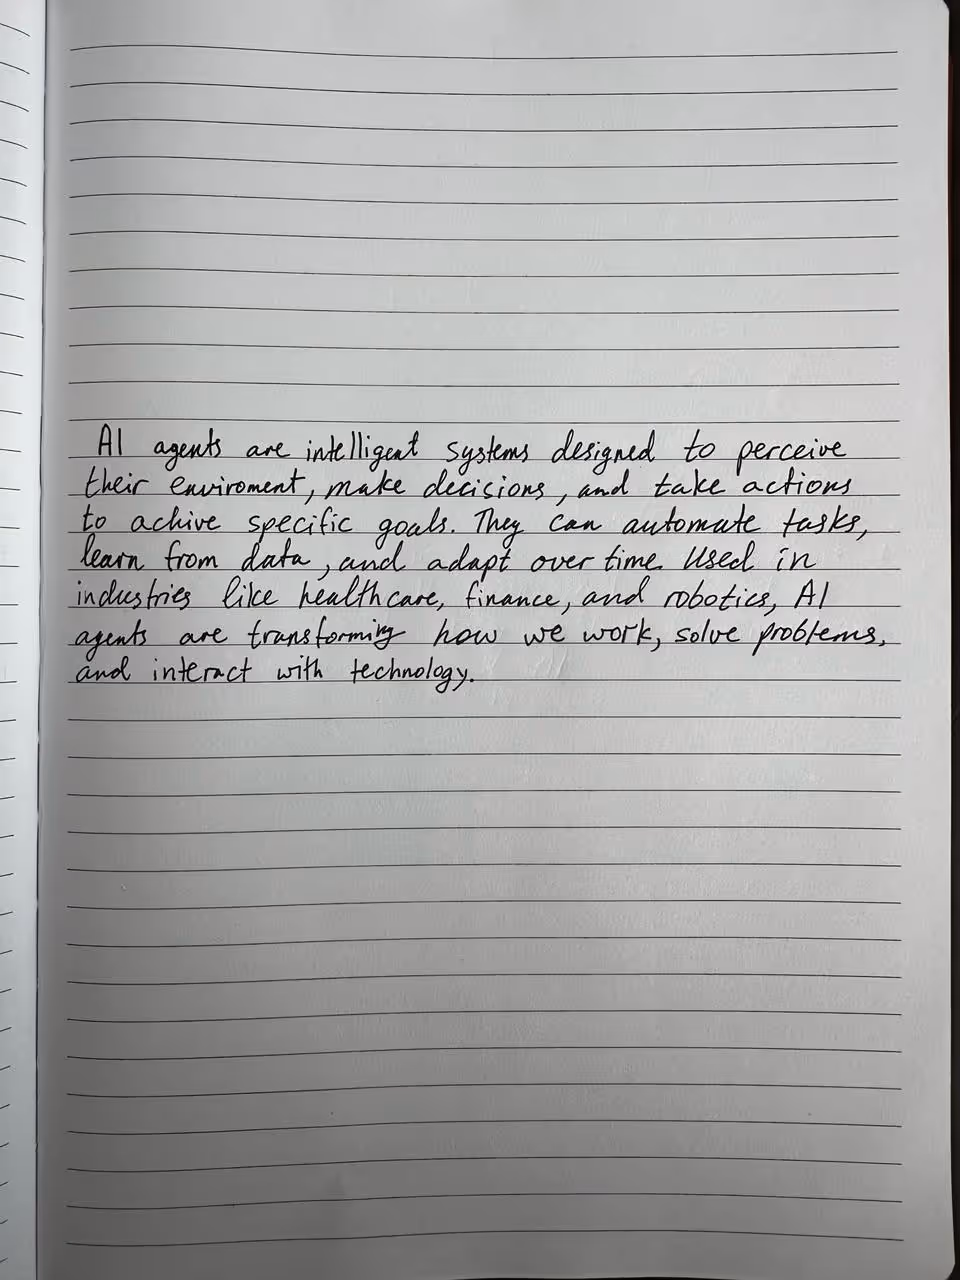 AI agents are intelligent systems designed to perceive
their enviroment, make decisions, and take actions
to achive specific goals. They can automate tasks,
learn from data, and adapt over time. Used in
industries like healthcare, finance, and robotics, AI
agents are transforming how we work, solve problems,
and interact with technology.